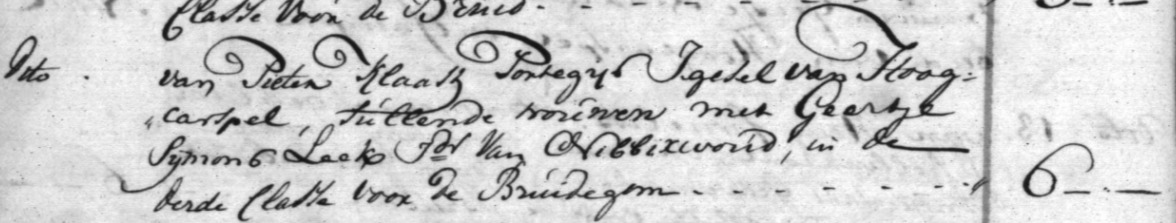 Classe voor de Bruid - - - - - 6 - . -
Dito . van Pieter Klaasz Portegijs J:gesel van Hoog=
„carspel, zullende trouwen met Geertje
Sijmons Leek J:dr van Nibbixwoud, in de
derde Classe voor de Bruidegom - - - - - - 6 - . -